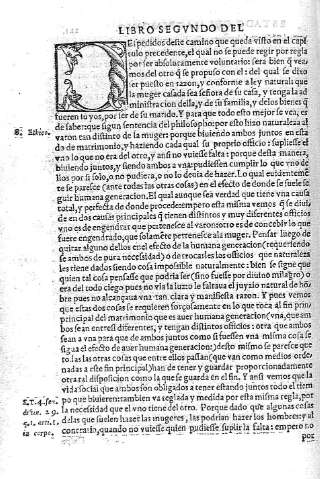 LIBRO SEGVNDO DEL
Espedidos deste camino que queda visto en el capi
tulo precedente, el qual no se puede regir por regla
por ser absolutamente voluntario: sera bien q vea
mos del otro q se propuso con el: del qual se dixo
ser puesto en razon, y conforme a ley natural: que
la muger casada sea señora de su casa, y tenga la ad
ministracion della, y de su familia, y delos bienes q
fueren suyos, por ser de su marido. Y para que todo esto mejor se vea, es
8. Ethico.
de saber: que segun sentencia del philosopho por esto hizo naturaleza al
varon tan distincto de la muger: porque biuiendo ambos juntos en esta
do de matrimonio, y haziendo cada qual su proprio officio: supliesse el
vno lo que no era del otro, y ansi no vuiesse falta: porque desta manera,
biuiendo juntos, y siendo ambos a vna pudiessen cumplir lo que vno de
llos por si solo, no pudiera, o no lo deuia de hazer. Lo qual euidenteme
te se paresce (ante todas las otras cosas) en el efecto de donde se suele se
guir humana generacion. El qual aunque sea verdad que tiene vna causa
total, y perfecta de donde procede: empero esta misma vemos q se diui
de en dos causas principales q tienen distinctos y muy diferentes officios
vno es de engendrar que pertenesce al varon: otro es de concebir lo que
fuere engendrado, que solamente pertenesce a la muger. Pensar luego de
quitar alguno dellos en el efecto de la humana generacion (requeriendo
se ambos de pura necessidad) o de trocarles los officios que naturaleza
les tiene dados siendo cosa impossible naturalmente: bien se sigue que
quien tal cosa pensasse que podria ser (sino fuesse por diuino milagro) o
era del todo ciego pues no via la luz o le faltaua el juyzio natural de hó-
bre pues no alcançaua vna tan clara y manifiesta razon. Y pues vemos
que estas dos cosas se requieren forçosamente en lo que toca al fin prin
cipal del matrimonio que es auer humana generacion (vna, que am-
bos sean entre si diferentes, y tengan distinctos officios: otra que ambos
sean a vna para que de ambos juntos como si fuessen vna misma cosa se
siga el efecto de auer humana generacion) desto mismo se paresce que
todas las otras cosas que entre ellos passan (que van como medios orde-
nadas a este fin principal) han de tener y guardar proporcionadamente
otra tal disposicion como la que se guarda en el fin. Y ansi vemos que la
vida social que ambos son obligados a tener estando juntos todo el tiem
po que biuieren: tambien va reglada y medida por esta misma regla, por
la necessidad que el vno tiene del otro. Porque dado que algunas cosas
delas que suelen hazer las mugeres, las podrian hazer los hombres: y al
contrario, quando no vuiesse quien pudiesse suplir la falta: empero no
por